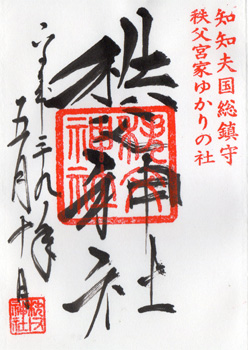 知知夫国総鎮守
秩父宮家ゆかりの社
秩父神社
秩父神社
五月十日
秩父神社